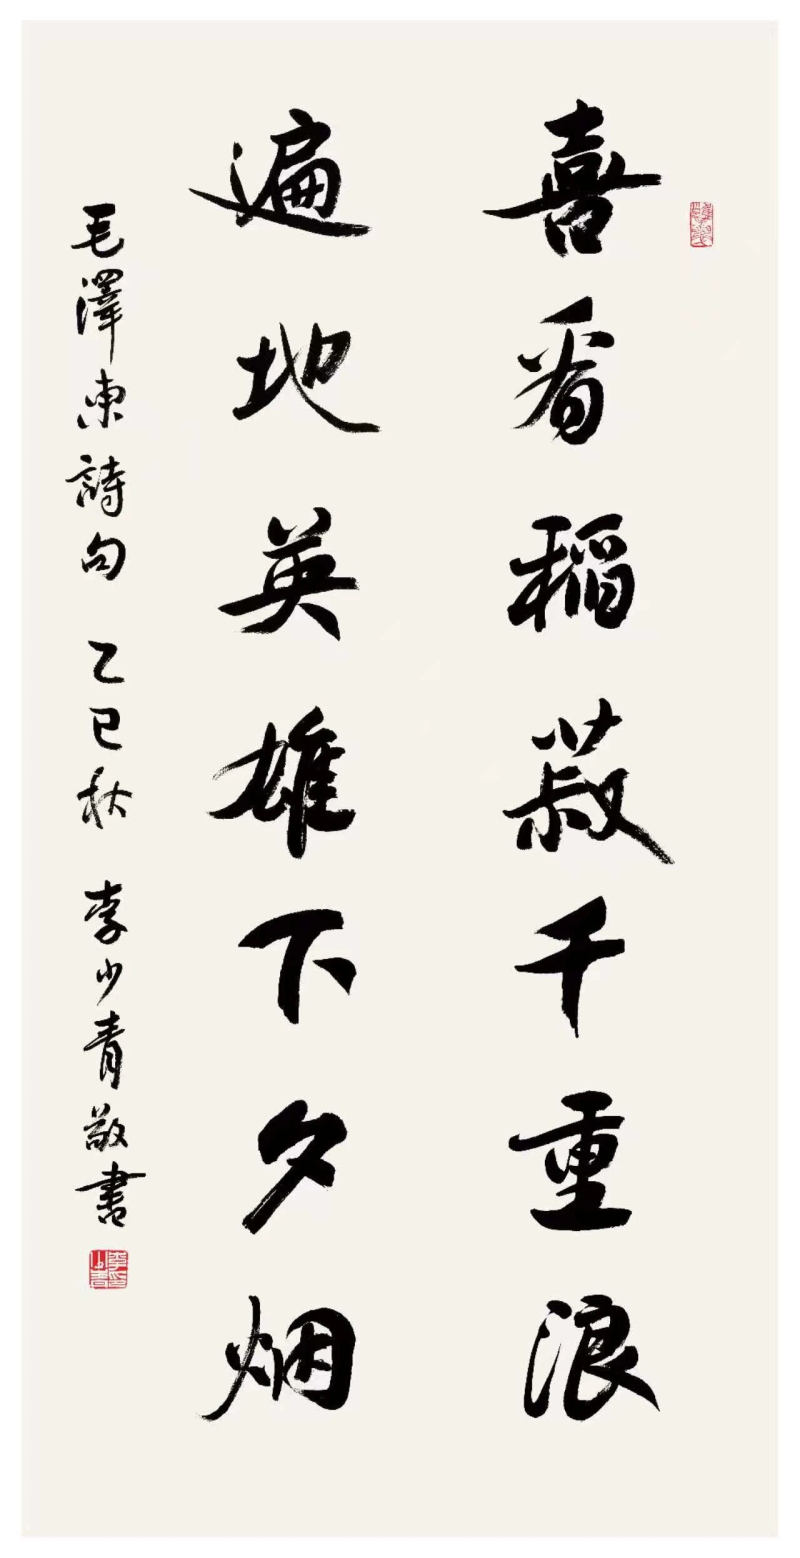 喜看稻菽千重浪
遍地英雄下夕烟
毛澤東詩句 乙巳秋 李少青敬書